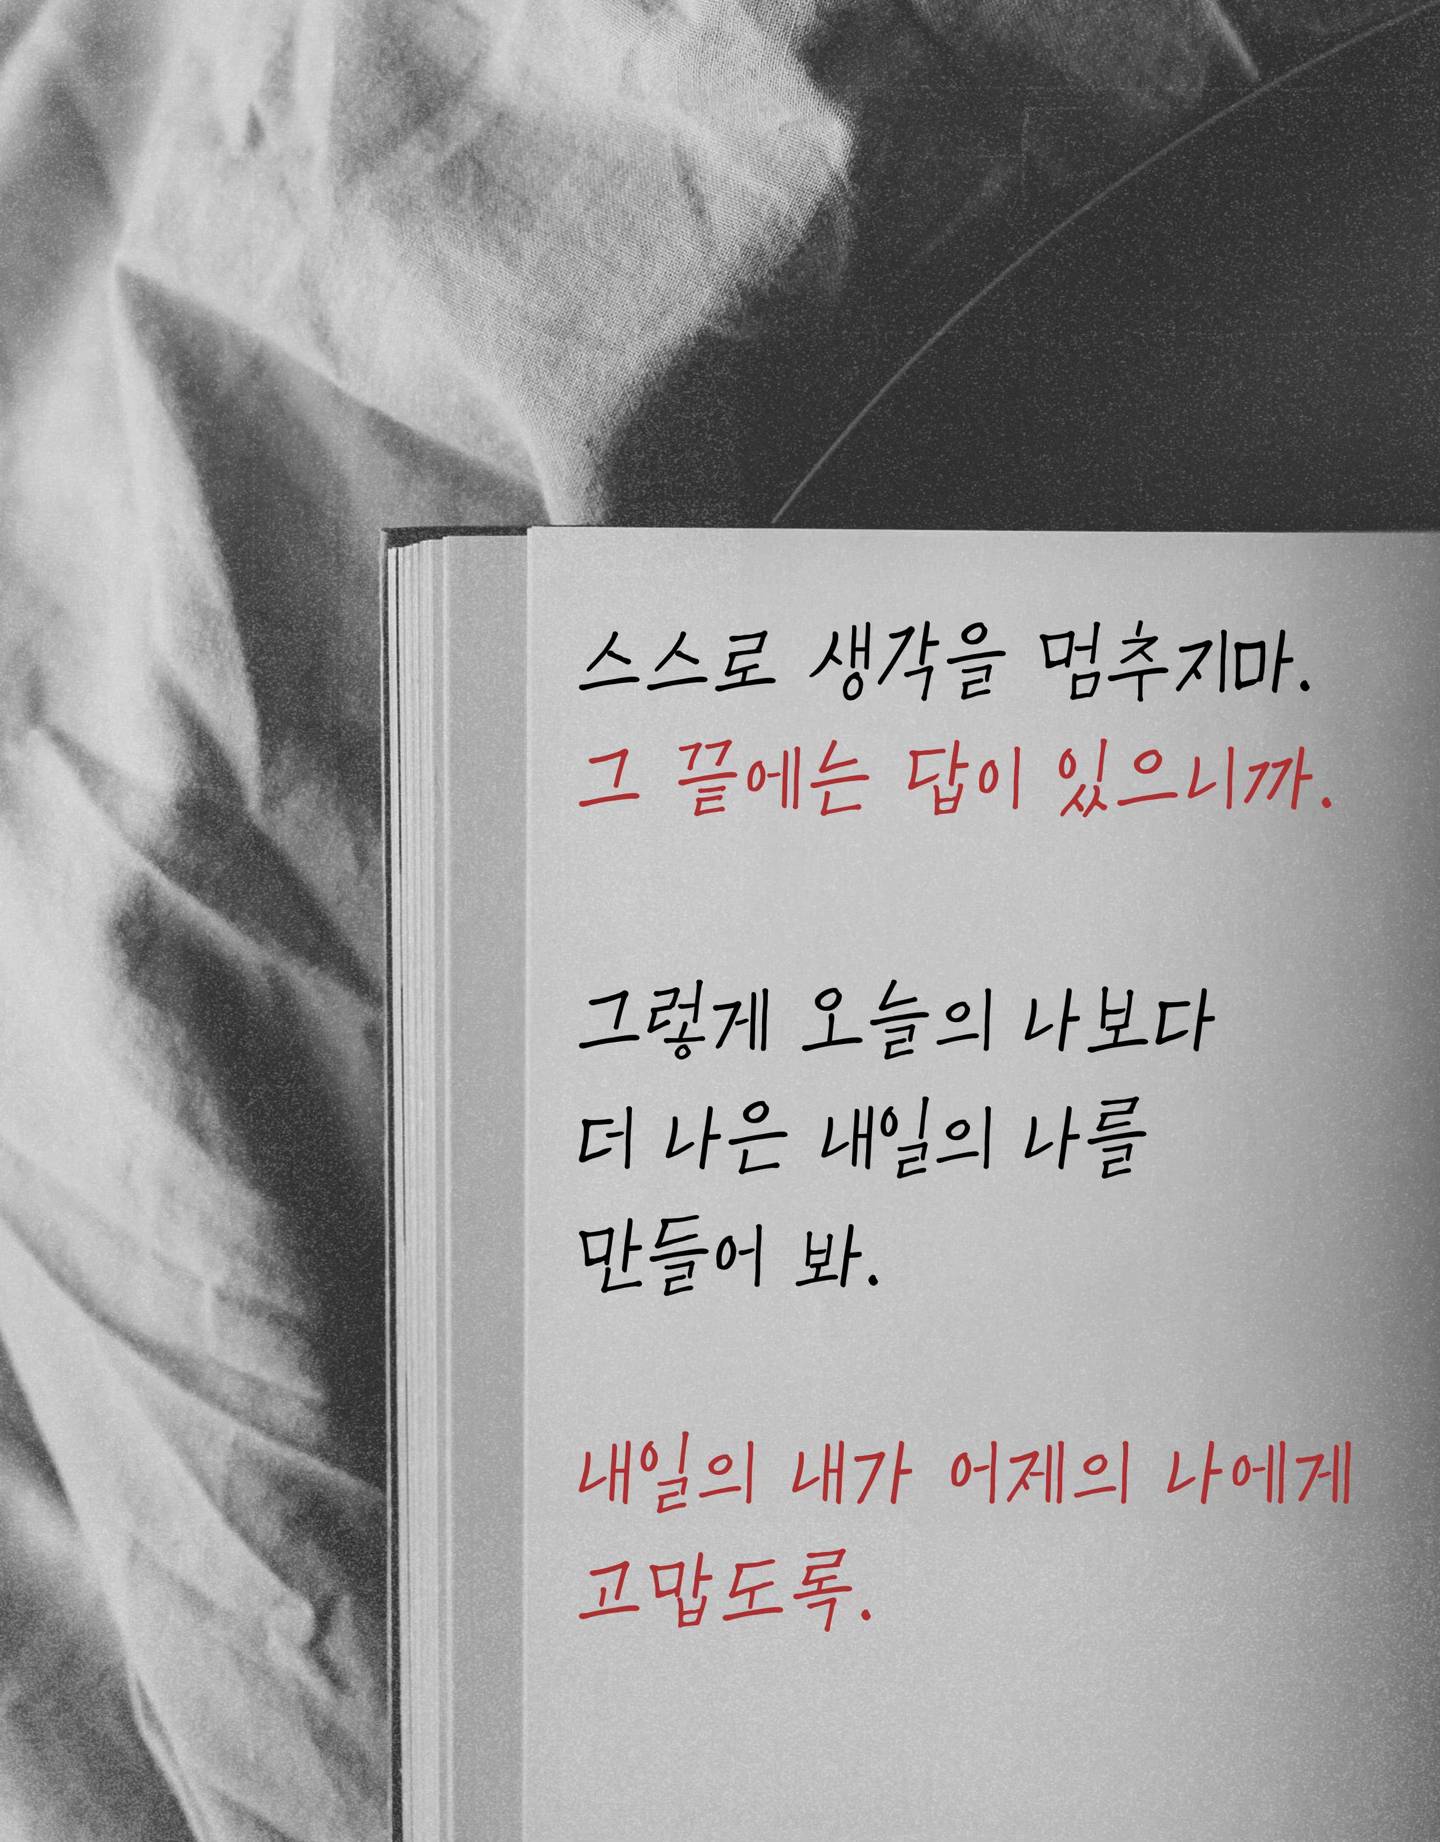 스스로 생각을 멈추지마.
그 끝에는 답이 있으니까.
그렇게 오늘의 나보다
더 나은 내일의 나를
만들어 봐.
내일의 내가 어제의 나에게
고맙도록.